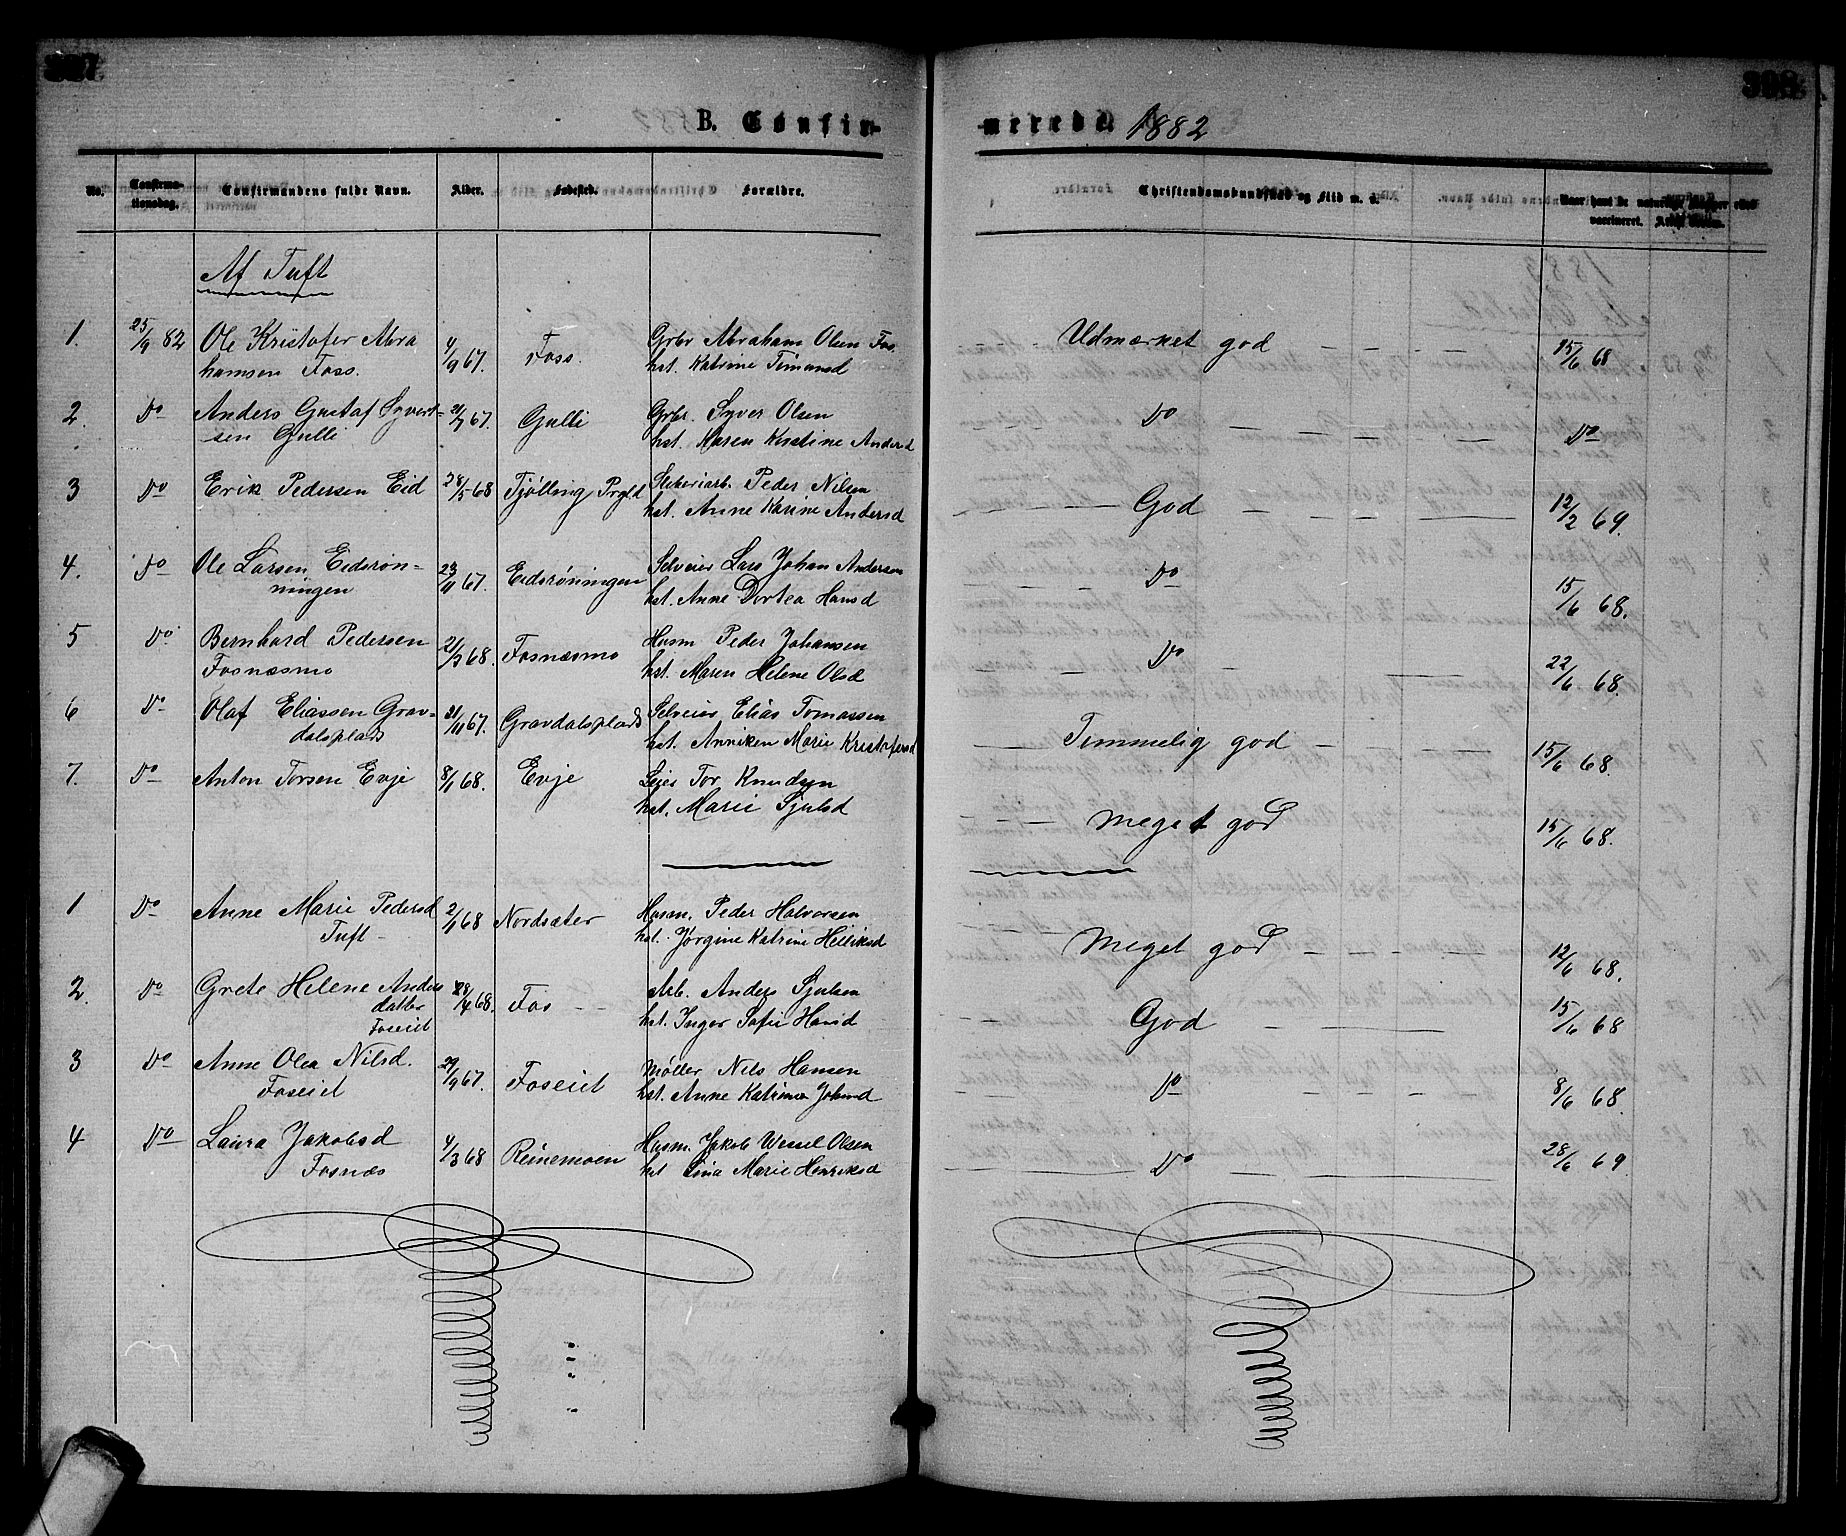 397
398
B. Confir-
merede. 1882
No.
Confirma-
tionsdag.
Confirmandens fulde Navn.
Alder.
Fødested.
Forældre.
Christendomskundskab og Flid m. v.
Naar havt de naturlige Kopper eller
vaccineret.
Af Tuft
1. 25/9 82 Ole Kristofer Abra 4/9 67. Foss. Grbr Abraham Olsen Fos Udmærket god 15/6 68
hamsen Foss. hst. Katrine Simonsd
2. Do Anders Gustaf Syvert- 21/7 67. Gulli Grbr. Syver Olsen Do Do
sen Gulli hst. Maren Kristine Andersd
3 Do Erik Pedersen Eid 28/5 68 Tjølling Prgld Peder Nilsen God 12/2 69.
hst. Anne Karine Andersd
4. Do Ole Larsen Eidsrøn- 23/11 67. Eidsrøningen Selveier Lars Johan Andersen Do 15/6 68.
ningen hst. Anne Dortea Hansd
5 Do. Bernhard Pedersen 21/3 68. Fosnæsmo Husm Peder Johansen Do 22/6 68.
Fosnæsmo hst. Maren Helene Olsd
6 Do Olaf Eliassen Grav- 21/11 67. Gravdalsplads Selveier Elias Tomassen Temmelig god 15/6 68.
dalsplads hst. Anniken Marie Kristofersd
7. Do Anton Torsen Evje 8/1 68. Evje Leier Tor Knudsen Meget god 15/6 68.
hst. Marie Sjulsd
1 Do Anne Marie Pedersd 2/1 68 Nordsæter Husm. Peder Halvorsen Meget god 12/6 68.
Tuft hst. Jørgine Katrine Helliksd
2. Do Grete Helene Anders 28/4 68. Fos Arb. Anders Sjulsen God 15/6 68
datter hst. Inger Sofie Hansd
Foseiet
3 Do Anne Olea Nilsd. 29/9 67. Foseiet Møller Nils Hansen Do 8/6 68.
Foseiet hst. Anne Katrine Johnsd
4 Do Laura Jakobsd 4/3 68 Reinemoen Husm. Jakob Wessel Olsen Do 28/6 69
Fosnæs hst Lina Marie Henriksd